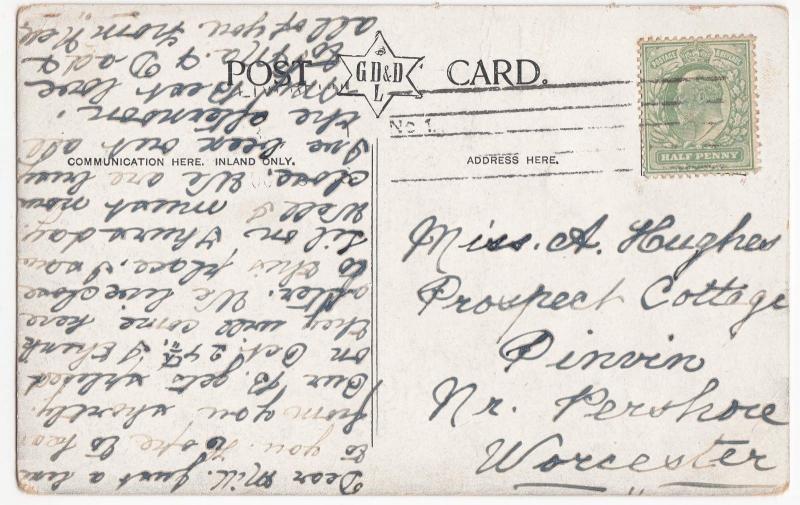 POST CARD.
G D & D L
COMMUNICATION HERE. INLAND ONLY.
ADDRESS HERE.
HALF PENNY
POSTAGE REVENUE
No 1
Miss. A. Hughes
Prospect Cottage
Pinvin
Nr. Pershore
Worcester
Dear Mill. Just a line
to you. Hope to hear
from you shortly.
Our B. gets spliced
on Oct. 24th. I think
they will come here
after. We live close
to this place. I saw
Lil on Thursday.
Well I must now
close. We are busy
I've been out all
the afternoon.
My best love
to Ma. & Dad &
all of you from Nell